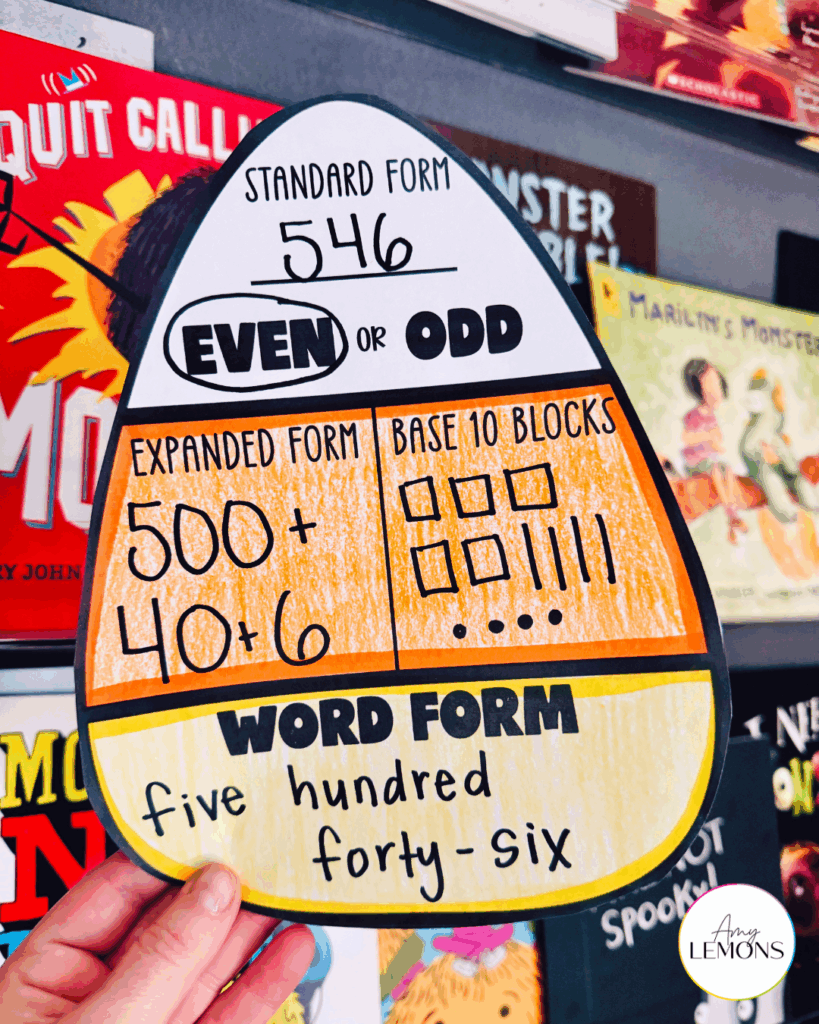 QUIT CALL
STANDARD FORM
546
EVEN OR ODD
EXPANDED FORM
500 +
40 + 6
BASE 10 BLOCKS
WORD FORM
five hundred
forty-six
SCHOLASTIC
MARILYN'S MONSTER
NOT
SPOOKY!
Amy
LEMONS